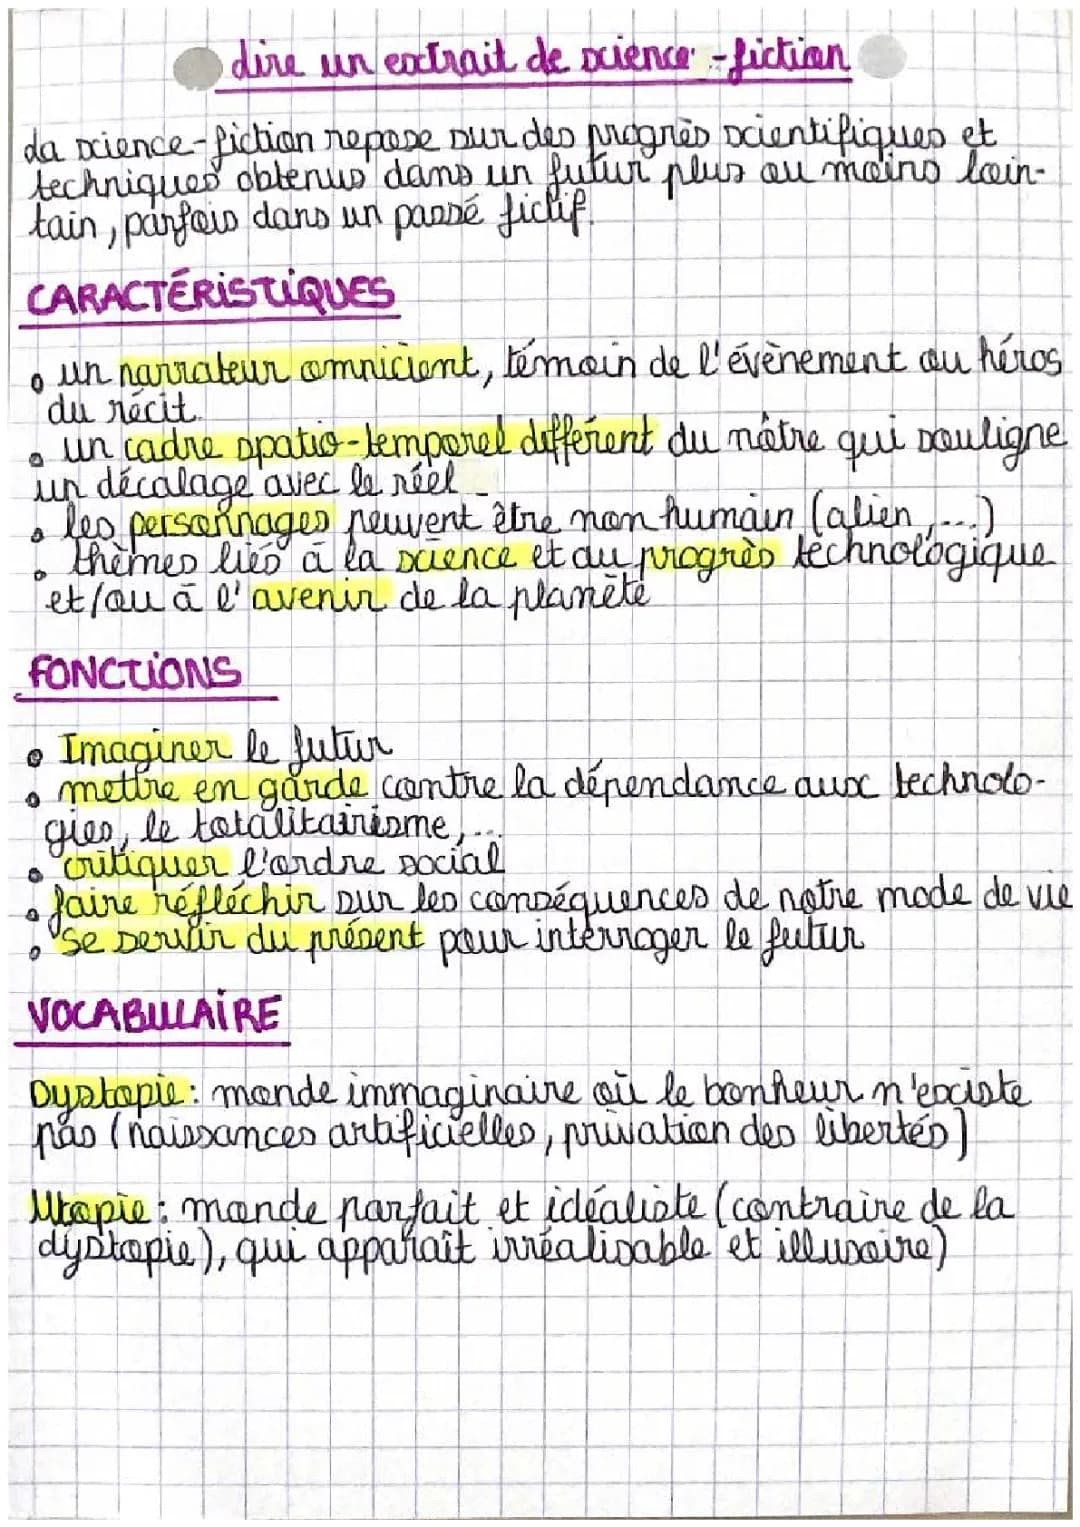 Lire un extrait de science-fiction
La science-fiction repose sur des progrès scientifiques et
techniques obtenus dans un futur plus ou moins loin-
tain, parfois dans un passé fictif.
CARACTÉRISTIQUES
• un narrateur omnicient, témoin de l'évènement ou héros
du récit.
• un cadre spatio-temporel différent du nôtre qui souligne
un décalage avec le réel
• les personnages peuvent être non humain (alien,...)
• thèmes liés à la science et au progrès technologique
et/ou à l'avenir de la planète
FONCTIONS
• Imaginer le futur
• mettre en garde contre la dépendance aux technolo-
gies, le totalitairisme,...
• critiquer l'ordre social
• faire réfléchir sur les conséquences de notre mode de vie
• se servir du présent pour interroger le futur
VOCABULAIRE
Dystopie : monde immaginaire où le bonheur n'existe
pas (naissances artificielles, privation des libertés)
Utopie : monde parfait et idéaliste (contraire de la
dystopie), qui apparaît irréalisable et illusoire)